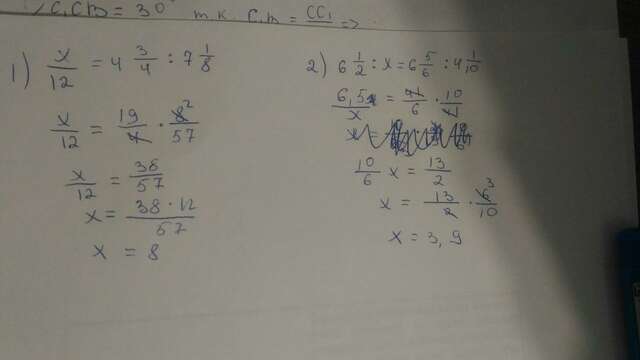 ∠C₁CM = 30° т.к. C₁M = CC₁ =>
1) x/12 = 4 3/4 : 7 1/8
x/12 = 19/4 · 8²/57
x/12 = 38/57
x = 38 · 12/57
x = 8
2) 6 1/2 : x = 6 5/6 : 4,1/0
6,5/x = 41/6 · 10/41
10/6 x = 13/2
x = 13/2 · 6³/10
x = 3,9